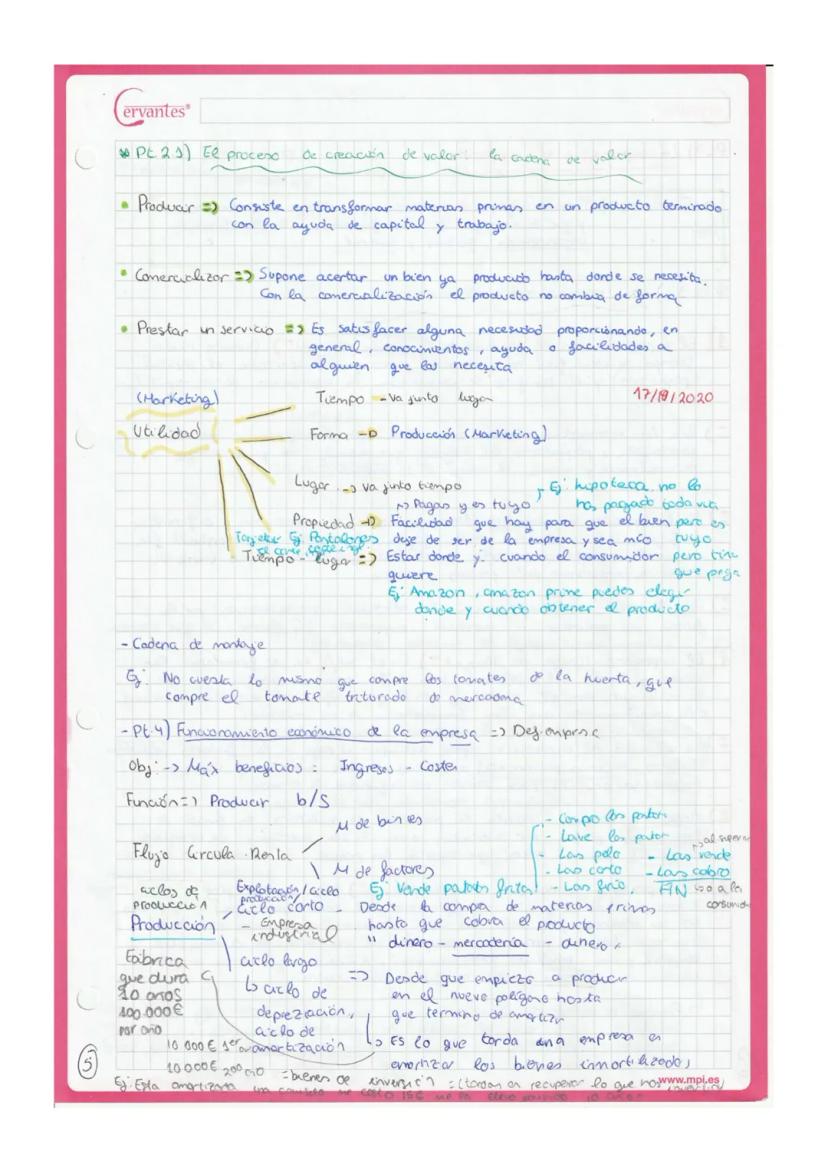 Cervantes®
* Pt. 2.1) El proceso de creación de valor: la cadena de valor
• Producir => Consiste en transformar materias primas en un producto terminado
con la ayuda de capital y trabajo.
• Comercializar => Supone acertar un bien ya producido hasta donde se necesita.
Con la comercialización el producto no cambia de forma
• Prestar un servicio => Es satisfacer alguna necesidad proporcionando, en
general, conocimientos, ayuda o facilidades a
alguien que las necesita
(Marketing)
Utilidad
Tiempo - Va junto lugar
17/9/2020
Forma -> Producción (Marketing)
Lugar -> va junto tiempo
Ej: hipoteca no lo
has pagado todavía
pero es
tuyo
pero tiene
que paga
-> Pagas y es tuyo
Propiedad -> Facilidad que hay para que el bien
deje de ser de la empresa y sea mío
Ej: Pantalones
Tiempo - lugar => Estar donde y cuando el consumidor
quiere
Ej: Amazon, amazon prime puedes elegir
donde y cuando obtener el producto
- Cadena de montaje
Ej: No cuesta lo mismo que compre los tomates de la huerta, que
compre el tomate triturado de mercadona
- Pt. 4) Funcionamiento económico de la empresa =>
Obj: -> Máx beneficios = Ingresos - Costes
Función => Producir b/s
Flujo Circular Renta
M de bienes
M de factores
Ej: Vende patatas fritas
- Compro las patatas
- Lavo las patatas
- Las pelo
- Las corto
- Las frío.
- Las vendo
- Las cobro
FIN
ciclos de
producción
Producción
Explotación / ciclo
producción
Ciclo corto - Desde la compra de materias primas
hasta que cobra el producto
" dinero - mercadería - dinero "
- Empresa
industrial
ciclo largo
↳ ciclo de
depreciación,
ciclo de
amortización
=> Desde que empieza a producir
en el nuevo polígono hasta
que termino de amortizar
↳ Es lo que tarda una empresa en
amortizar los bienes inmovilizados
Fábrica
que dura
10 años
100.000€
por año
10.000€ 1er año
10.000€ 2º año
= bienes de inversión = (tardan en recuperar lo que
5
www.mpi.es